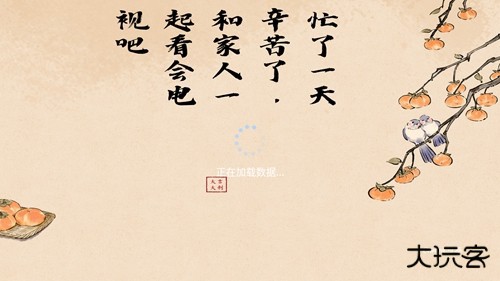 忙了一天
辛苦了，
和家人一
起看会电
视吧
正在加载数据...
大玩客